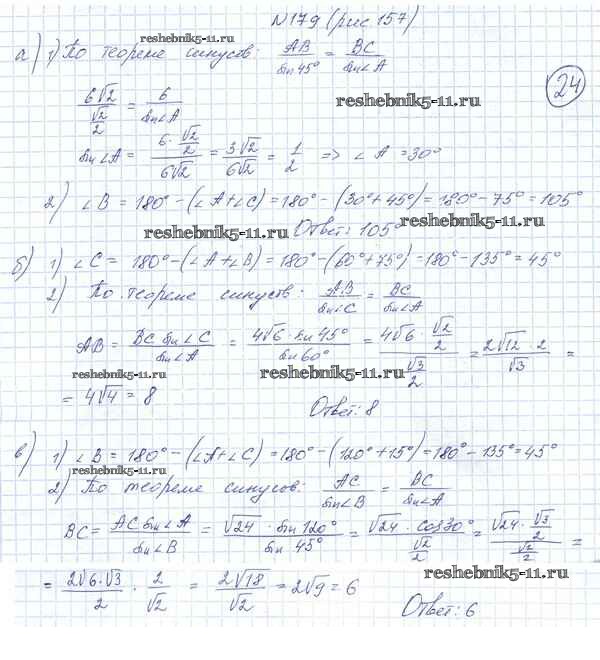 №179 (рис 157)
reshebnik5-11.ru
а) 1) По теореме синусов: AB/sin45° = BC/sin∠A
24
6√2/(√2/2) = 6/sin∠A
reshebnik5-11.ru
sin∠A = (6·√2/2)/(6√2) = 3√2/6√2 = 1/2 => ∠A = 30°
2) ∠B = 180° - (∠A+∠C) = 180° - (30°+45°) = 180° - 75° = 105°
reshebnik5-11.ru
Ответ: 105°
reshebnik5-11.ru
б) 1) ∠C = 180° - (∠A+∠B) = 180° - (60°+75°) = 180° - 135° = 45°
2) По теореме синусов: AB/sin∠C = BC/sin∠A
AB = BC sin∠C/sin∠A = 4√6 · sin45°/sin60° = (4√6 · √2/2)/(√3/2) = 2√12 · 2/√3 =
reshebnik5-11.ru
reshebnik5-11.ru
= 4√4 = 8
Ответ: 8
в) 1) ∠B = 180° - (∠A+∠C) = 180° - (120°+15°) = 180° - 135° = 45°
reshebnik5-11.ru
2) По теореме синусов: AC/sin∠B = BC/sin∠A
BC = AC sin∠A/sin∠B = √24 · sin120°/sin45° = √24 · cos30°/(√2/2) = (√24 · √3/2)/(√2/2) =
= 2√6·√3/2 · 2/√2 = 2√18/√2 = 2√9 = 6
reshebnik5-11.ru
Ответ: 6